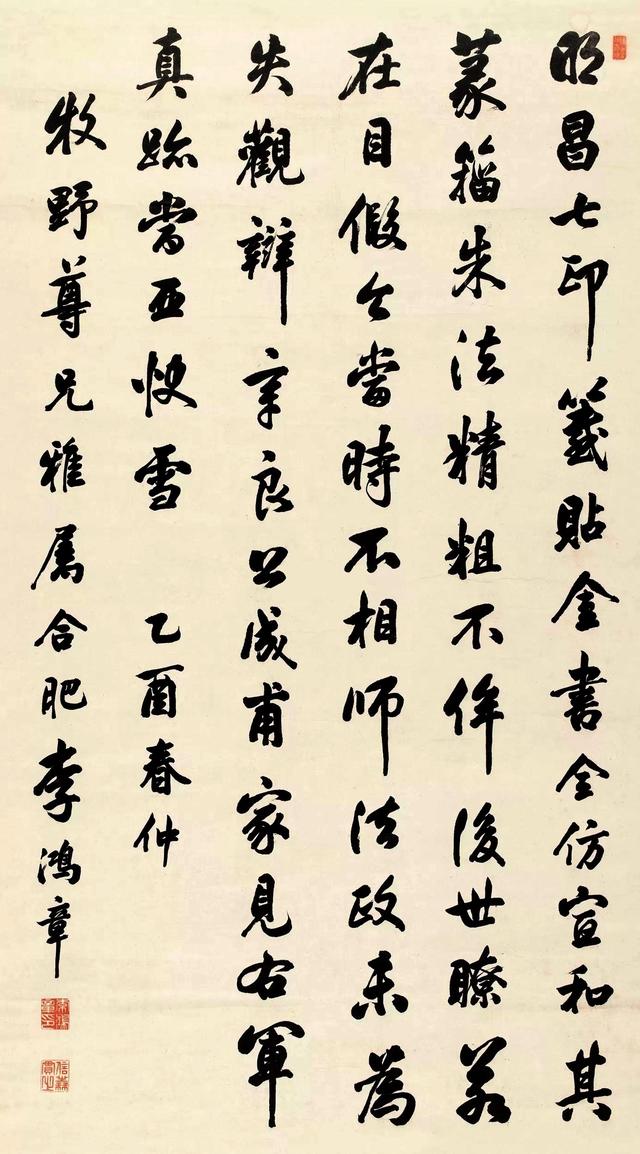 明昌七印籤貼金書全仿宣和其
篆籀朱法精粗不侔後世瞭若
在目假令當時不相師法政未為
失觀辯章良公成甫家見右軍
真跡當亞快雪 乙酉春仲
牧野尊兄雅屬合肥李鴻章